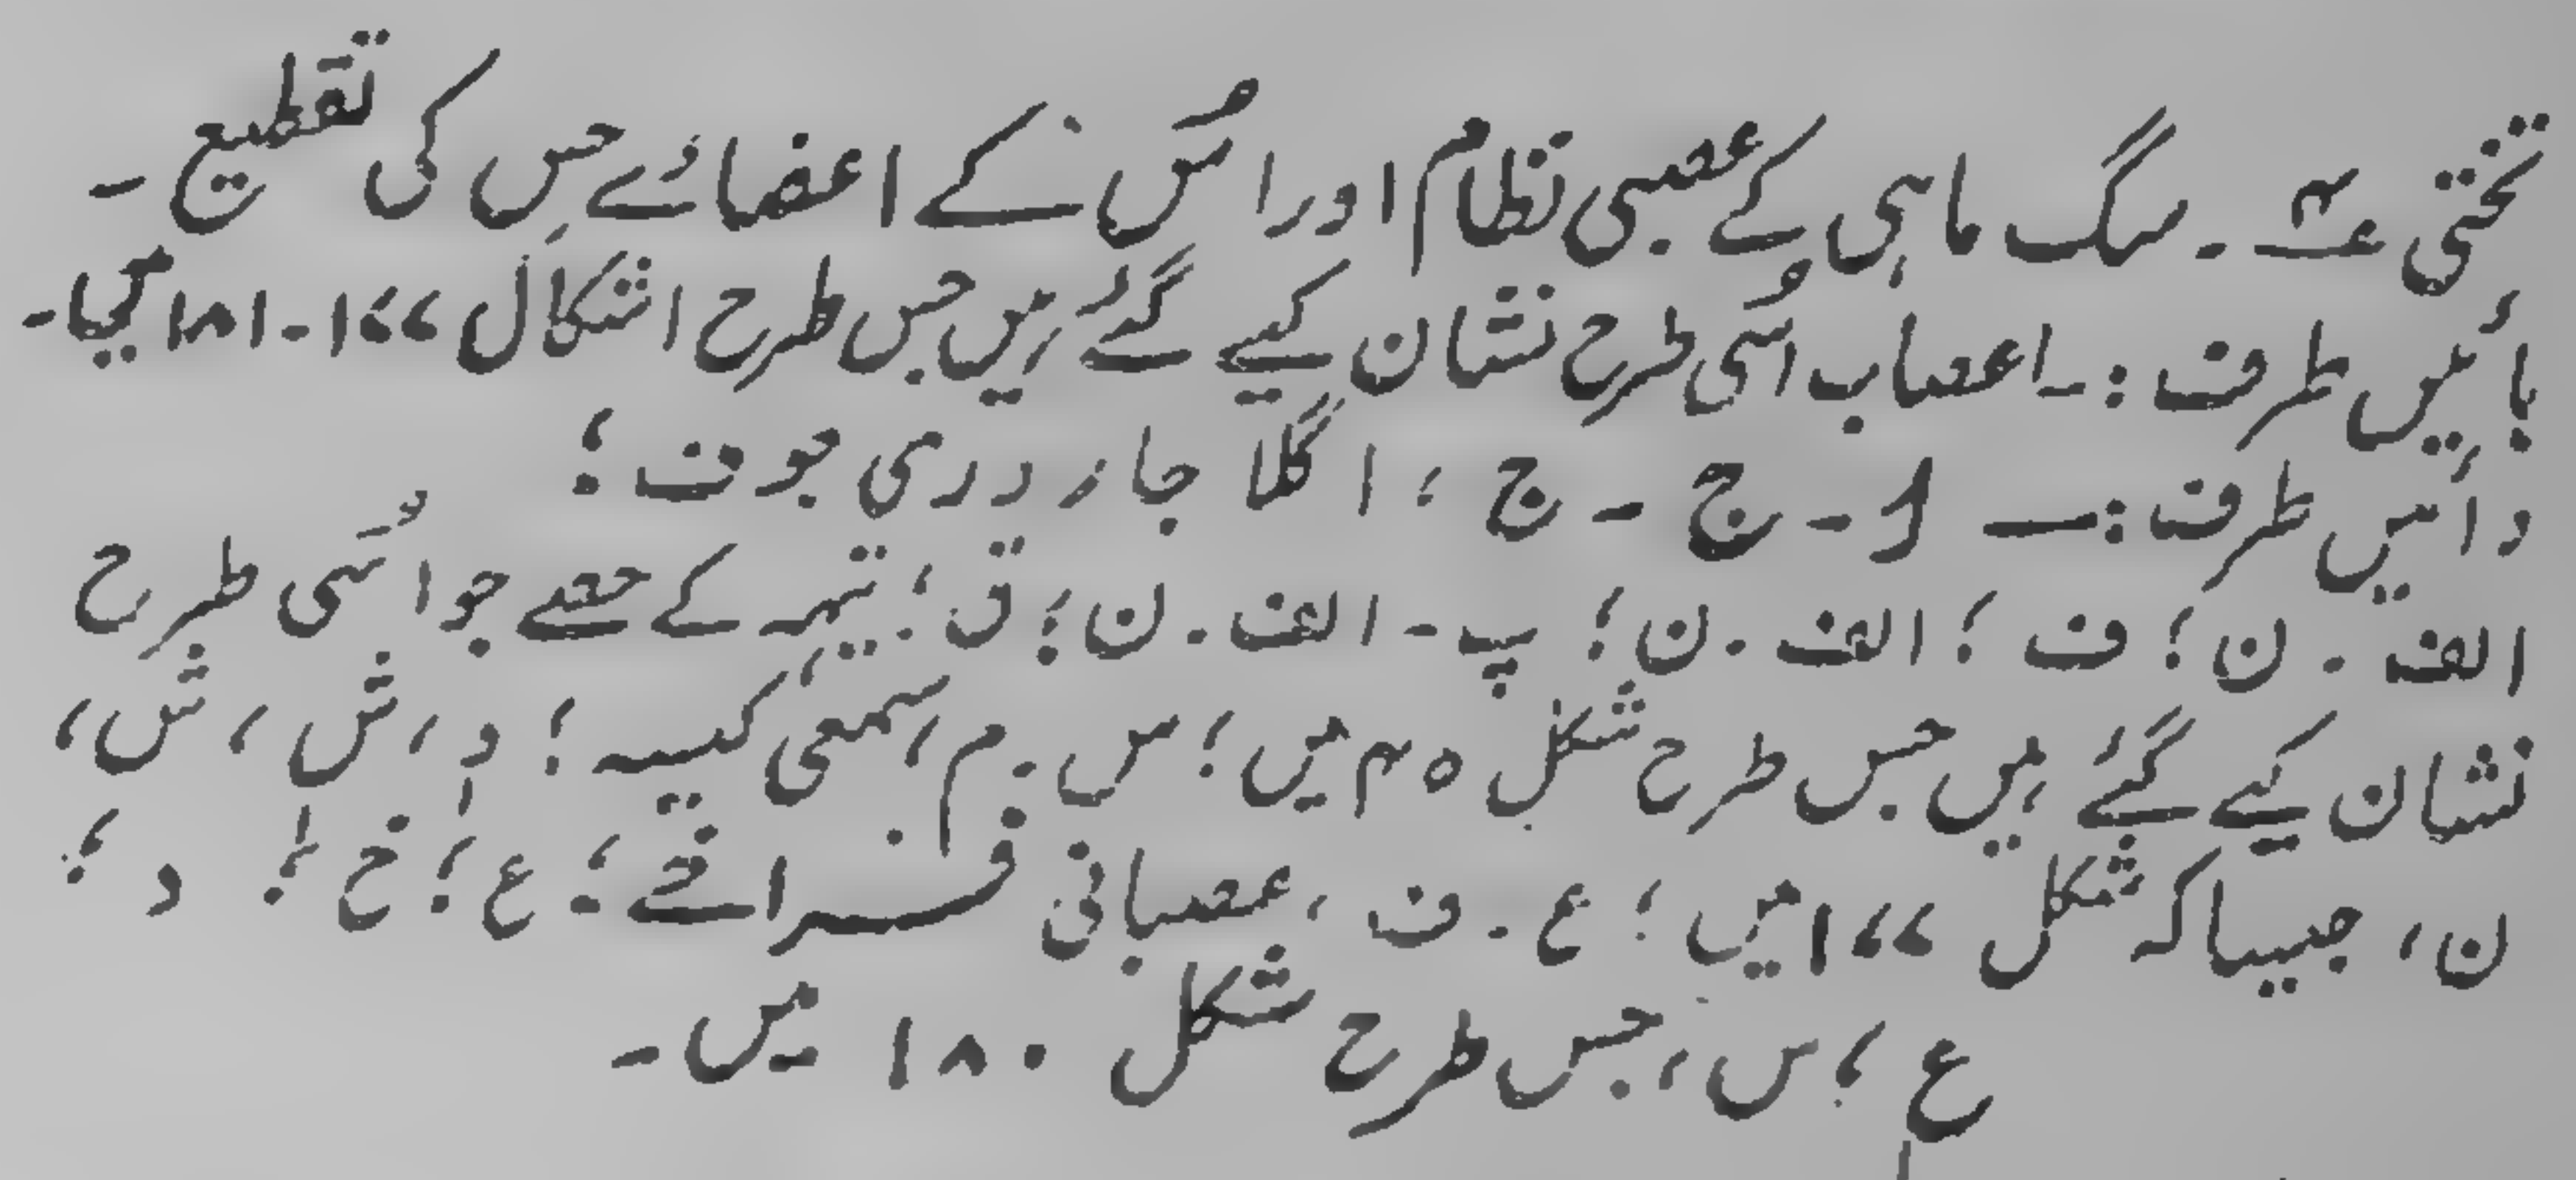 تختی ۴؎ ۔ سگ ماہی کے عصبی نظام اور اُس کے اعضائے حِس کی تقطیع ۔
بائیں طرف :۔ اعصاب اُسی طرح نشان کیے گئے ہیں جس طرح اشکال ۱۷۷ ۔ ۱۸۱ میں ۔
دائیں طرف :۔ ا ۔ ج ۔ ج ، اگلا جار دری جوف ؛
الف ۔ ن ؛ ف ؛ الف ۔ ن ؛ پ ۔ الف ۔ ن ؛ ق ؛ تیہہ کے حصے جو اُسی طرح
نشان کیے گئے ہیں جس طرح شکل ۴۵ میں ؛ س ۔ م ، سمعی کیسہ ؛ د ، ش ، ش ،
ن ، جیسا کہ شکل ۱۷۷ میں ؛ ع ۔ ف ، عصبانی فراخے ؛ ع ؛ خ ؛ د ؛
ع ؛ س ، جس طرح شکل ۱۸۰ میں ۔